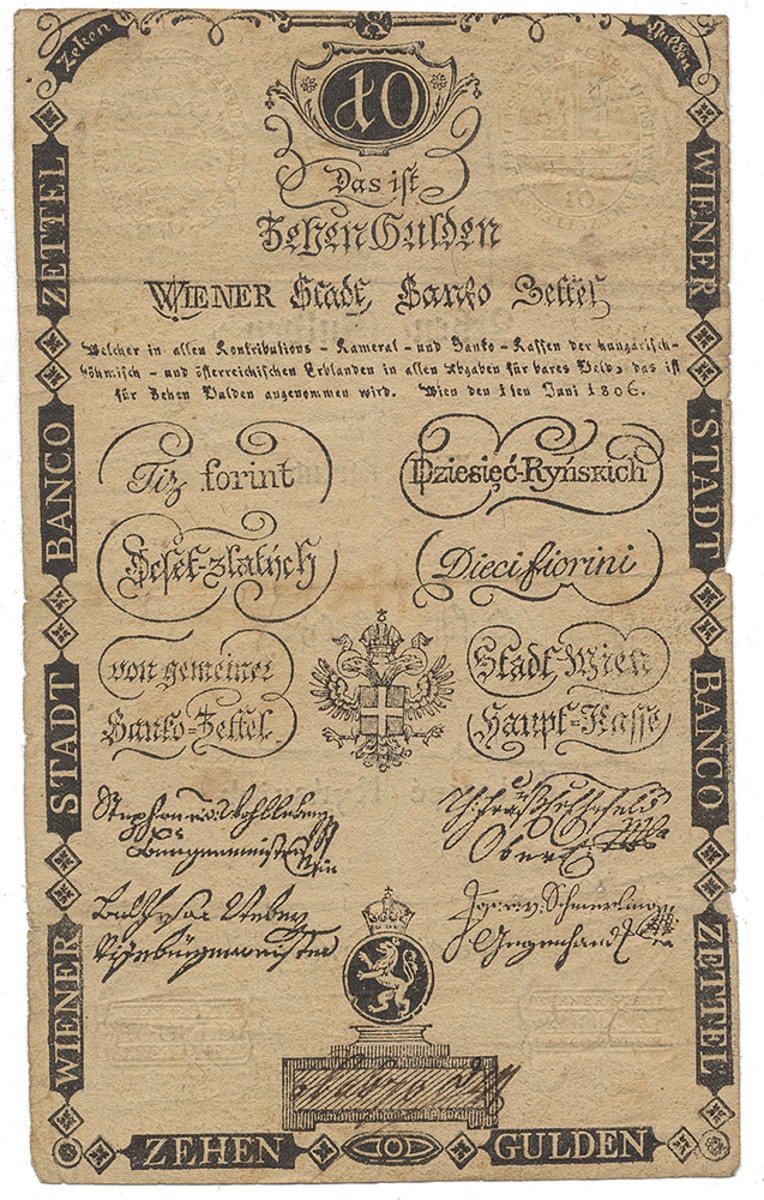 Zehen
Gulden
10
Das ist
Zehen Gulden
WIENER Stadt Banko Zettel
Welcher in allen Kontributions - Kameral - und Banko - Kassen der hungarisch-
böhmisch - und österreichischen Erblanden in allen Abgaben für bares Geld, das ist
für Zehen Gulden angenommen wird. Wien den 1ten Juni 1806.
Tiz forint
Dziesięć-Ryńskich
Deset-zlatých
Dieci fiorini
von gemeiner
Stadt Wien
Banko-Zettel
Haupt-Kasse
Oberst
Gegenhand
WIENER STADT BANCO ZETTEL
WIENER STADT BANCO ZETTEL
10
ZEHEN
GULDEN